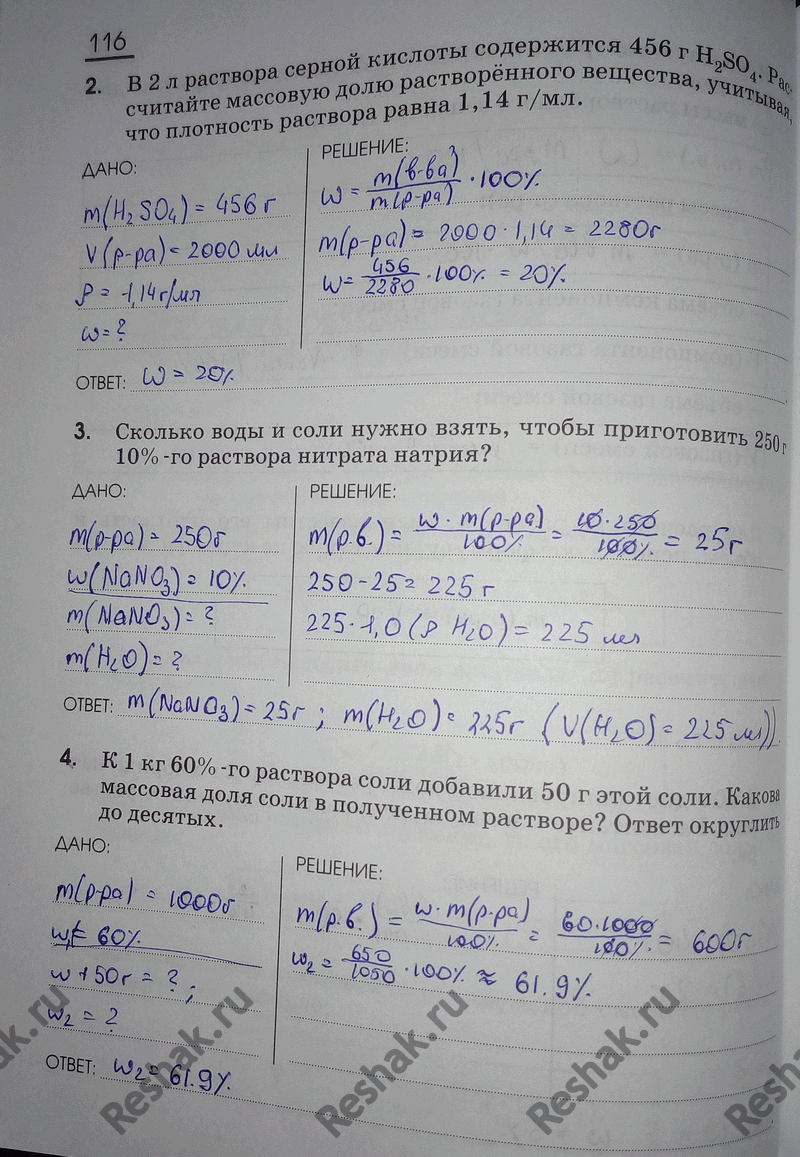 116
2. В 2 л раствора серной кислоты содержится 456 г H₂SO₄. Рас-
считайте массовую долю растворённого вещества, учитывая,
что плотность раствора равна 1,14 г/мл.
ДАНО:
m(H₂SO₄) = 456 г
V(р-ра) = 2000 мл
ρ = 1,14 г/мл
ω = ?
РЕШЕНИЕ:
ω = m(в-ва) / m(р-ра) · 100%
m(р-ра) = 2000 · 1,14 = 2280г
ω = 456/2280 · 100% = 20%
ОТВЕТ: ω = 20%
3. Сколько воды и соли нужно взять, чтобы приготовить 250 г
10%-го раствора нитрата натрия?
ДАНО:
m(р-ра) = 250г
ω(NaNO₃) = 10%
m(NaNO₃) = ?
m(H₂O) = ?
РЕШЕНИЕ:
m(р.в.) = ω · m(р-ра) / 100% = 10 · 250 / 100% = 25 г
250 - 25 = 225 г
225 · 1,0 (ρ H₂O) = 225 мл
ОТВЕТ: m(NaNO₃) = 25г ; m(H₂O) = 225г (V(H₂O) = 225 мл))
4. К 1 кг 60%-го раствора соли добавили 50 г этой соли. Какова
массовая доля соли в полученном растворе? Ответ округлить
до десятых.
ДАНО:
m(р-ра) = 1000г
ω₁ = 60%
ω + 50г = ? ;
ω₂ = ?
РЕШЕНИЕ:
m(р.в.) = ω · m(р-ра) / 100% = 60 · 1000 / 100% = 600г
ω₂ = 650/1050 · 100% ≈ 61.9%
ОТВЕТ: ω₂ = 61.9%
Reshak.ru
Reshak.ru
Reshak.ru